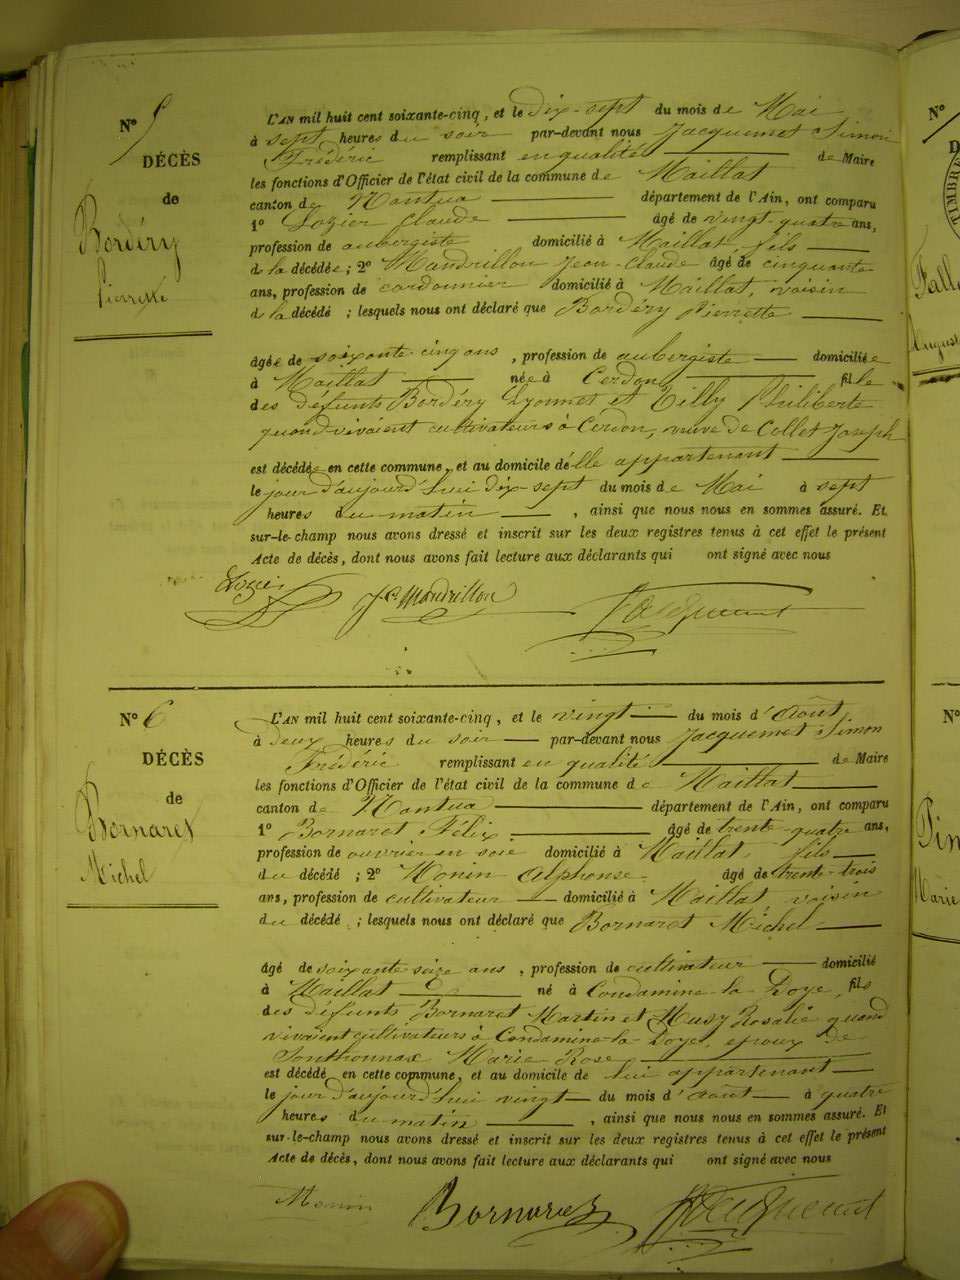 N° 5
DÉCÈS
de
Bordéry
Pierrette
L'AN mil huit cent soixante-cinq, et le dix-sept du mois de Mai
à sept heures du soir par-devant nous Jacquemet Simon
Frédéric remplissant en qualité de Maire
les fonctions d'Officier de l'état civil de la commune de Maillat
canton de Nantua département de l'Ain, ont comparu
1° Lozier Claude âgé de vingt-quatre ans,
profession de aubergiste domicilié à Maillat, fils
de la décédée; 2° Mandrillon Jean-Claude âgé de cinquante
ans, profession de cordonnier domicilié à Maillat, voisin
de la décédé ; lesquels nous ont déclaré que Bordéry Pierrette
âgée de soixante-cinq ans, profession de aubergiste domiciliée
à Maillat née à Cerdon fille
des défunts Bordéry Lyonnet et Tilly Philiberte
quand vivaient cultivateurs à Cerdon, veuve de Collet Joseph
est décédée en cette commune, et au domicile d'elle appartenant
le jour d'aujourd'hui dix-sept du mois de Mai à sept
heures du matin , ainsi que nous nous en sommes assuré. Et
sur-le-champ nous avons dressé et inscrit sur les deux registres tenus à cet effet le présent
Acte de décès, dont nous avons fait lecture aux déclarants qui ont signé avec nous
J.C. Mandrillon Jacquemet
N° 6
DÉCÈS
de
Bornaret
Michel
L'AN mil huit cent soixante-cinq, et le vingt du mois d'Août
à deux heures du soir par-devant nous Jacquemet Simon
Frédéric remplissant en qualité de Maire
les fonctions d'Officier de l'état civil de la commune de Maillat
canton de Nantua département de l'Ain, ont comparu
1° Bornaret Félix âgé de trente-quatre ans,
profession de ouvrier en soie domicilié à Maillat, fils
du décédé ; 2° Monin Alphonse âgé de trente-trois
ans, profession de cultivateur domicilié à Maillat, voisin
du décédé ; lesquels nous ont déclaré que Bornaret Michel
âgé de soixante-seize ans , profession de cultivateur domicilié
à Maillat né à Condamine-la-Doye, fils
des défunts Bornaret Martin et Musy Rosalie quand
vivaient cultivateurs à Condamine-la-Doye, époux de
Sonthonnax Marie Rose
est décédé en cette commune, et au domicile de lui appartenant
le jour d'aujourd'hui vingt du mois d'Août à quatre
heures du matin , ainsi que nous nous en sommes assuré. Et
sur-le-champ nous avons dressé et inscrit sur les deux registres tenus à cet effet le présent
Acte de décès, dont nous avons fait lecture aux déclarants qui ont signé avec nous
Monin Bornaret Jacquemet
N°
TIMBRE
N°
Marie